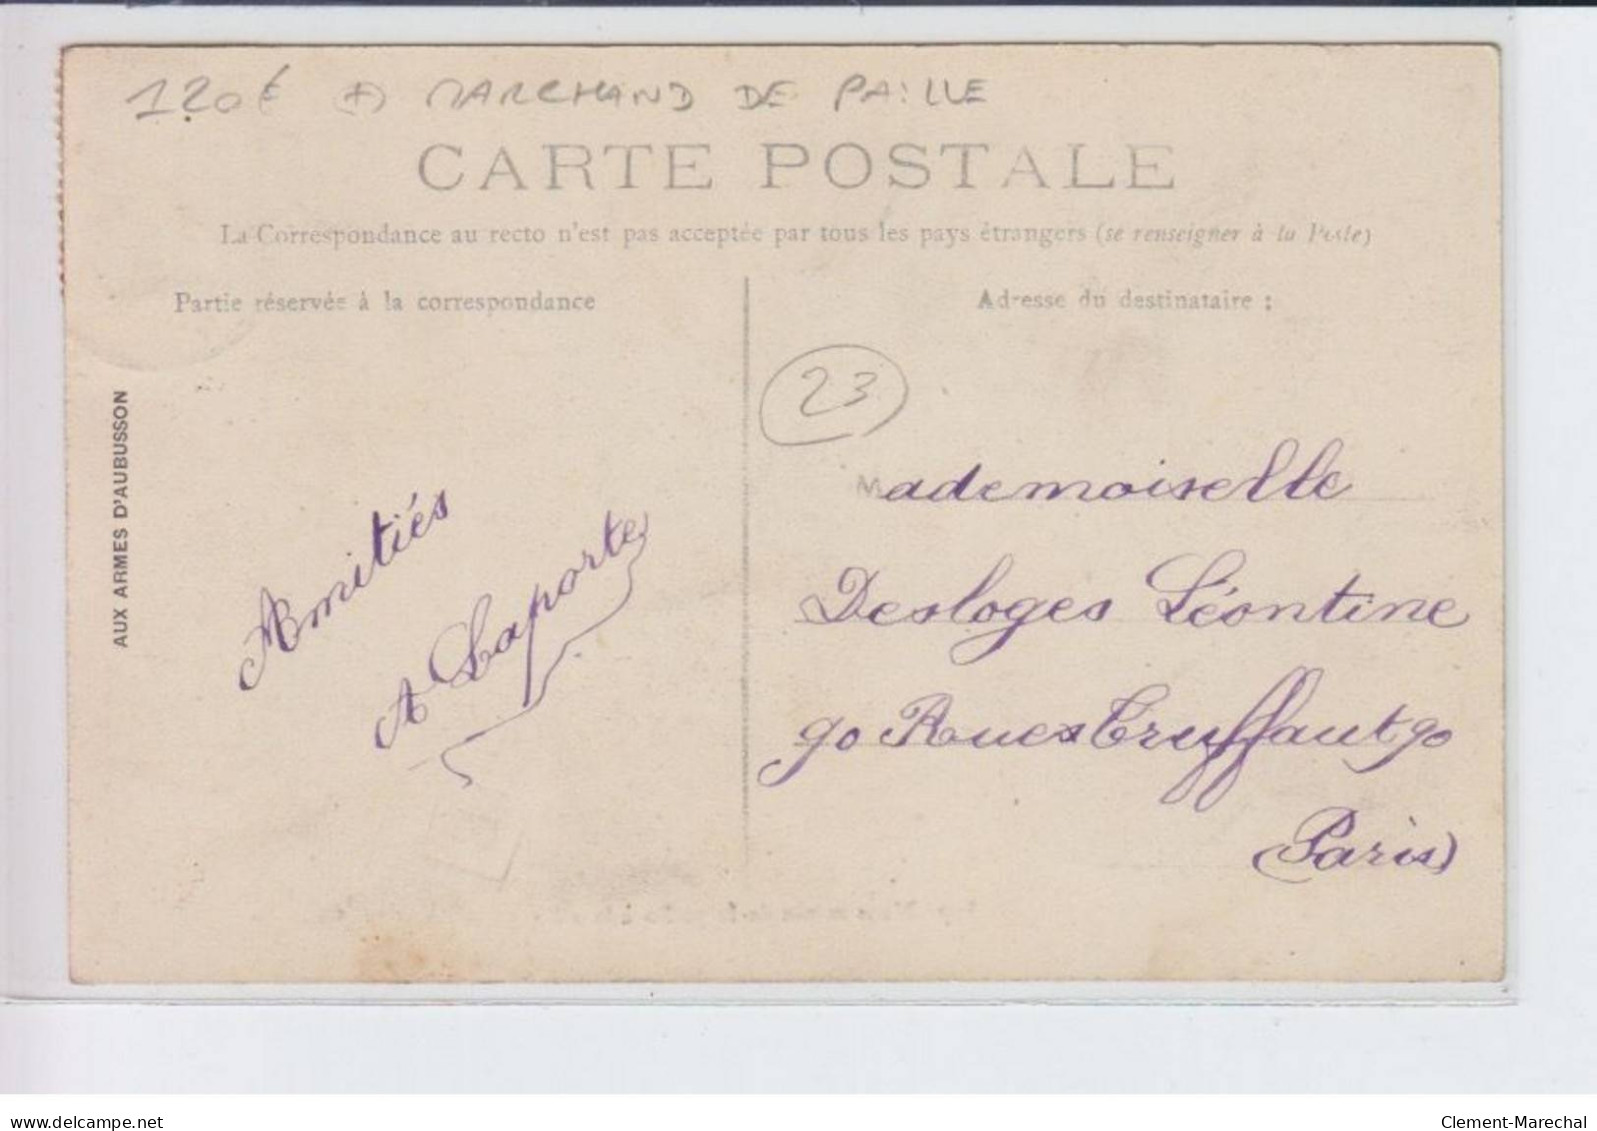 120€ (+) MARCHAND DE PAILLE
CARTE POSTALE
La Correspondance au recto n'est pas acceptée par tous les pays étrangers (se renseigner à la Poste)
Partie réservée à la correspondance
Adresse du destinataire :
AUX ARMES D'AUBUSSON
Amitiés
A Laporte
23
Mademoiselle
Desloges Léontine
90 Rue Truffaut 90
Paris
delcampe.net
Clement-Marechal